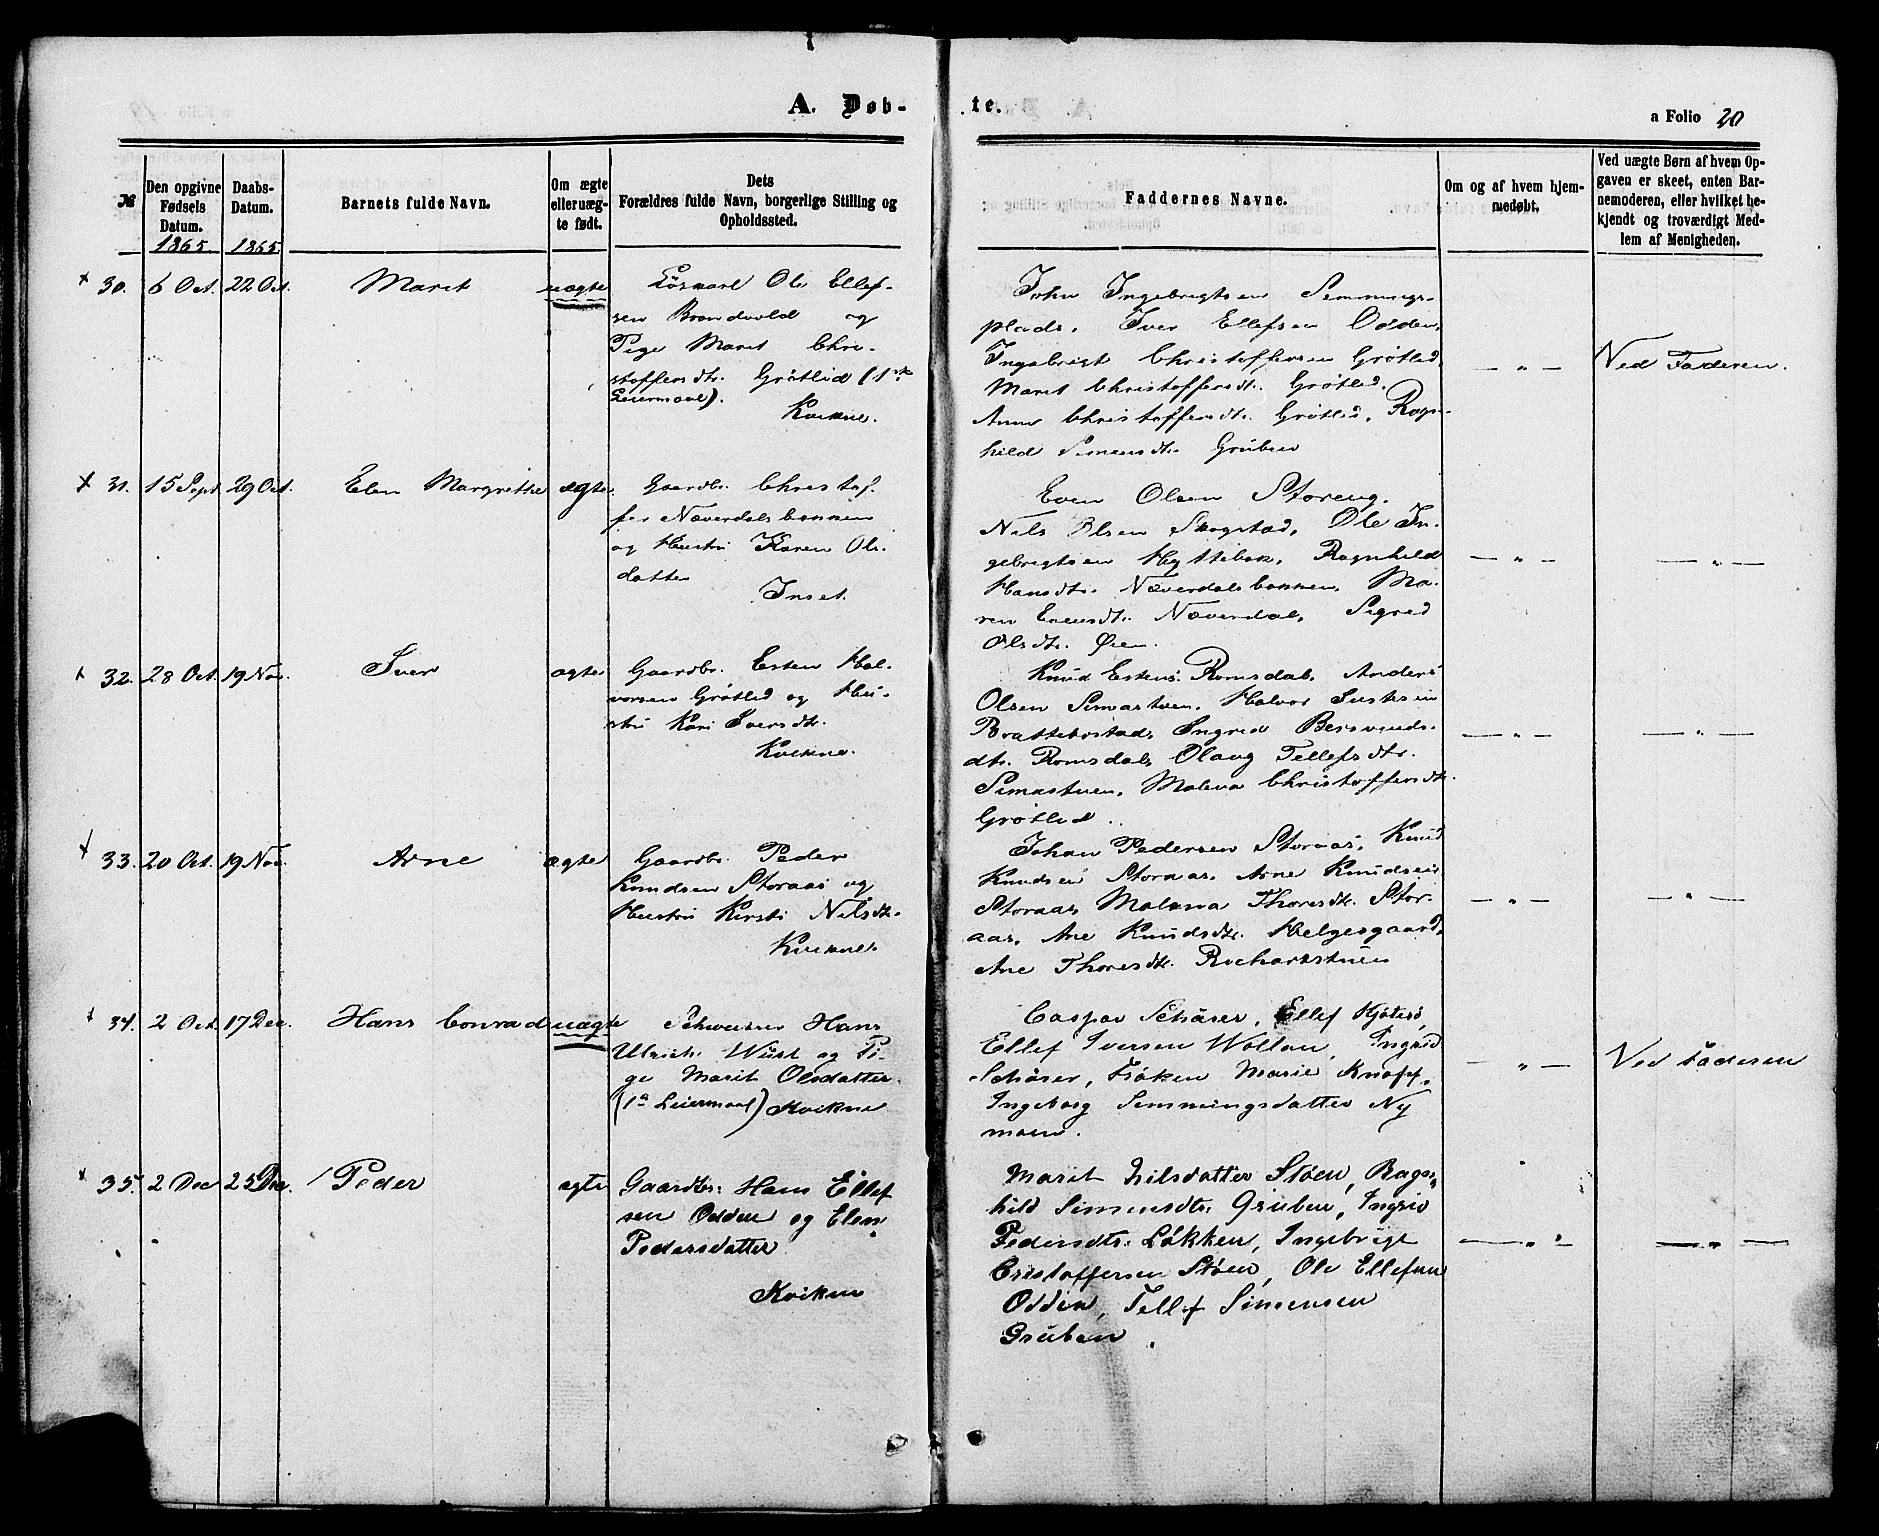 A. Døb-
te.
a Folio 20
№
Den opgivne
Fødsels
Datum.
1865
Daabs-
Datum.
1865.
Barnets fulde Navn.
Om ægte
eller uæg-
te født.
Dets
Forældres fulde Navn, borgerlige Stilling og
Opholdssted.
Faddernes Navne.
Om og af hvem hjem-
medøbt.
Ved uægte Børn af hvem Op-
gaven er skeet, enten Bar-
nemoderen, eller hvilket be-
kjendt og troværdigt Med-
lem af Menigheden.
30. 6 Oct. 22 Oct. Maret uægte
Løsmand Ole Ellef-
sen Brandvold og
Pige Maret Chri-
stoffersdtr. Grøtlid (1ste
Leiermaal).
Kvikne.
John Ingebrigtsen Semmings-
plads, Iver Ellefsen Odden,
Ingebrigt Christoffersen Grøtlid,
Maret Christoffersdtr. Grøtlid,
Anne Christoffersdtr. Grøtlid, Ragn-
hild Simensdtr. Gruben
— „ —
Ved Faderen.
31. 15 Sept. 29 Oct. Elen Margrethe ægte
Gaardbr. Christof-
fer Næverdalsbakken
og Hustru Karen Ols-
datter
Inset.
Even Olsen Storeng,
Nils Olsen Skogstad, Ole In-
gebrigtsen Hyttebak, Ragnhild
Hansdtr. Næverdalsbakken, Ma-
ren Evensdtr. Næverdal, Sigrid
Olsdtr. Øien.
— „ —
— „ —
32. 28 Oct. 19 Nov. Iver ægte
Gaardbr. Esten Hal-
vorsen Grøtlid og Hu-
stru Kari Iversdtr.
Kvikne.
Knud Estens. Romsdal, Anders
Olsen Simastuen, Halvor
Brattebostad, Ingrid
dtr. Romsdal, Olaug Tellefsdtr.
Simastuen, Malena Christoffersdtr.
Grøtlid.
— „ —
— „ —
33. 20 Oct. 19 Nov. Arne ægte
Gaardbr. Peder
Knudsen Storaas og
Hustru Kirsti Nilsdtr.
Kvikne.
Johan Pedersen Storaas, Knud
Knudsen Storaas, Arne Knudsen
Storaas, Malena Thoresdtr. Stor-
aas, Ane Knudsdtr. Helgesgaard,
Ane Thoresdtr. Rochartstuen
— „ —
— „ —
34. 2 Oct. 17 Dec. Hans Conrad uægte
Schweizer Hans
Ulrich Wüst og Pi-
ge Marit Olsdatter
(1ste Leiermaal) Kvikne
Caspar Schärer, Ellef
Ellef Iversen Wollan, Ingrid
Schärer, Frøken Marie Knopf,
Ingeborg Semmingsdatter Ny
moen.
— „ —
Ved Faderen
35. 2 Dec 25 Dec. Peder ægte
Gaardbr. Hans Ellef
sen Odden og Elen
Pedersdatter
Kvikne
Marit Nilsdatter Støen, Ragn-
hild Simensdtr. Gruben, Ingrid
Pedersdtr. Løkken, Ingebrigt
Cristoffersen Støen, Ole Ellefsen
Odden, Tellef Simensen
Gruben.
— „ —
— „ —